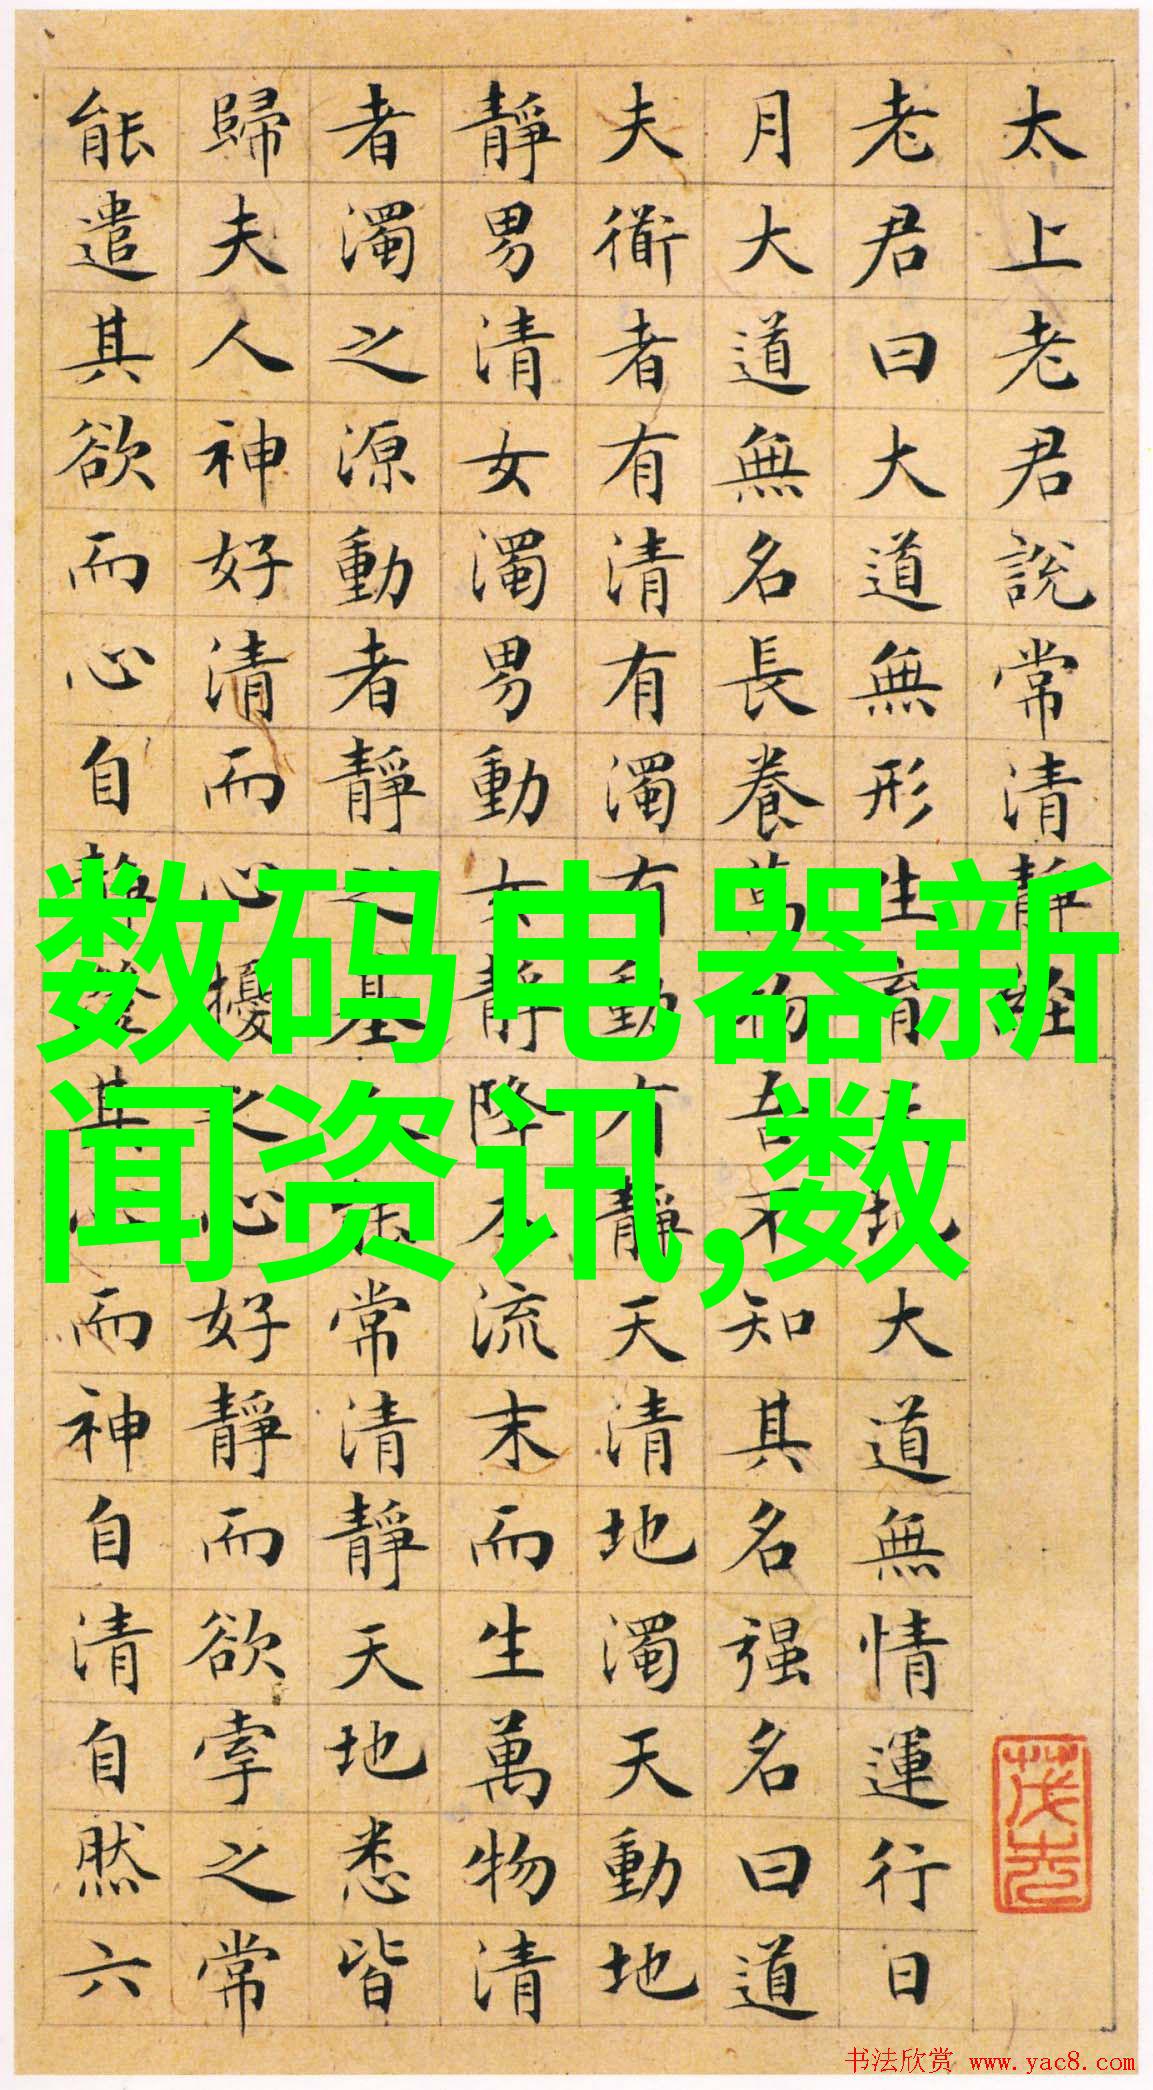 太上老君說常清靜經
老君曰大道無形生育天地大道無情運行日
月大道無名長養萬物吾不知其名强名曰道
夫衜者有清有濁有動有靜天清地濁天動地
靜男清女濁男動女靜降本流末而生萬物清
者濁之源動者靜之基人能常清靜天地悉皆
歸夫人神好清而心擾之心好靜而欲牽之常
能遣其欲而心自靜澄其心而神自清自然六
数码电器新
闻资讯,数
书法欣赏 www.yac8.com